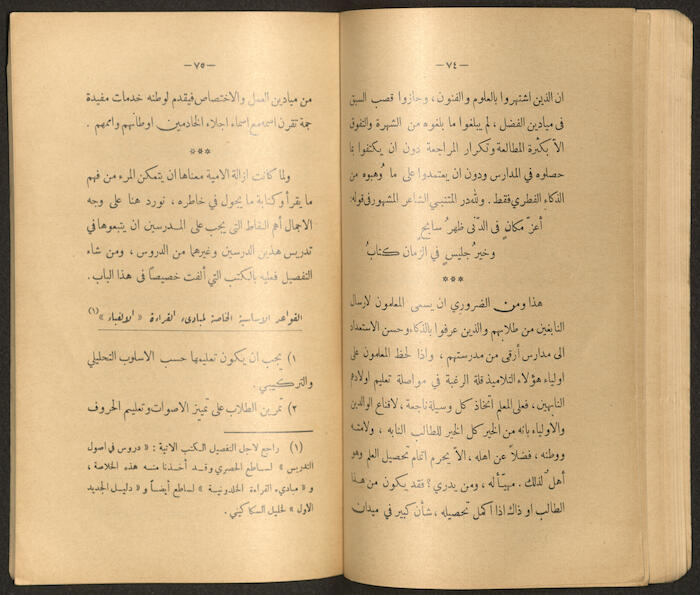 — ٧٤ —
ان الذين اشتهروا بالعلوم والفنون ، وحازوا قصب السبق
فى ميادين الفضل ، لم يبلغوا ما بلغوه من الشهرة والتفوق
الاّ بكثرة المطالعة وتكرار المراجعة دون ان يكتفوا بما
حصلوه في المدارس ودون ان يعتمدوا على ما وُهبوه من
الذكاء الفطري فقط . ولله در المتنبي الشاعر المشهور فى قوله:
أعزّ مكانٍ فى الدنى ظهرُ سابحٍ
وخيرُ جليسٍ في الزمان كتابُ
***
هذا ومن الضروري ان يسعى المعلمون لارسال
النابغين من طلابهم والذين عرفوا بالذكاء وحسن الاستعداد
الى مدارس أرقى من مدرستهم ، واذا لحظ المعلمون على
اولياء هؤلاء التلاميذ قلة الرغبة في مواصلة تعليم اولادهم
النابهين ، فعلى المعلم اتخاذ كل وسيلة ناجعة ، لاقناع الوالدين
والاولياء بانه من الخير كل الخير للطالب النابه ، ولامته
ووطنه ، فضلاً عن اهله ، الاّ يحرم اتمام تحصيل العلم وهو
أهلٌ لذلك . مهيّأ له ، ومن يدري ؟ فقد يكون من هذا
الطالب او ذاك اذا اكمل تحصيله ، شأن كبير في ميدان
— ٧٥ —
من ميادين العمل والاختصاص فيقدم لوطنه خدمات مفيدة
جمة تقرن اسمه مع اسماء اجلاء الخادمين اوطانهم واممهم .
***
ولما كانت ازالة الامية معناها ان يتمكن المرء من فهم
ما يقرأ وكتابة ما يجول في خاطره ، نورد هنا على وجه
الاجمال أهم النقاط التى يجب على المدرسين ان يتبعوها في
تدريس هذين الدرسين وغيرهما من الدروس ، ومن شاء
التفصيل فعليه بالكتب التي ألفت خصيصاً في هذا الباب.
القواعد الاساسية الخاصة لمبادىء القراءة « الالفباء » (١)
١) يجب ان يكون تعليمها حسب الاسلوب التحليلي
والتركيبي .
٢) تمرين الطلاب على تمييز الاصوات وتعليم الحروف
(١) راجع لاجل التفصيل الكتب الاتية : « دروس في اصول
التدريس » لساطع الحصري وقد أخذنا منه هذه الخلاصة ،
و « مبادىء القراءة الخلدونية » لساطع أيضاً و « دليل الجديد
الاول » لخليل السكاكيني .